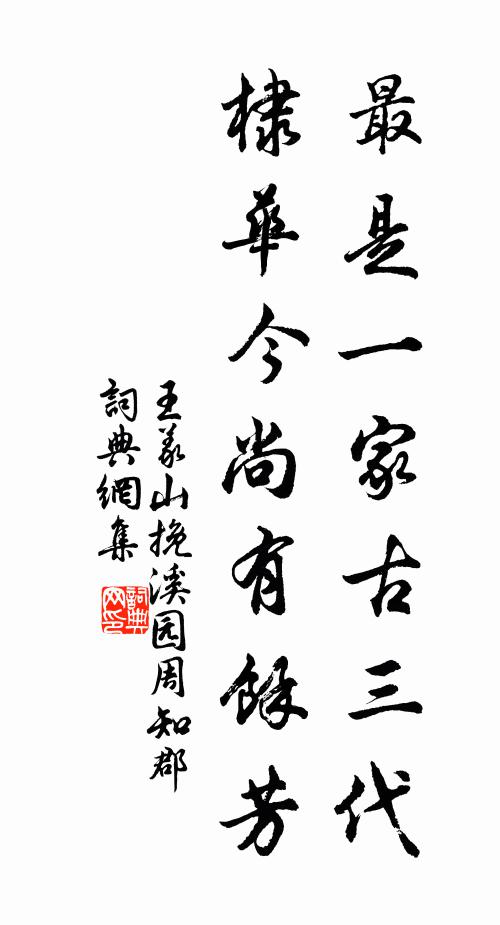 最是一家古三代
棣華今尚有餘芳
王義山挽溪园周知郡
詞典網集
詞典网印